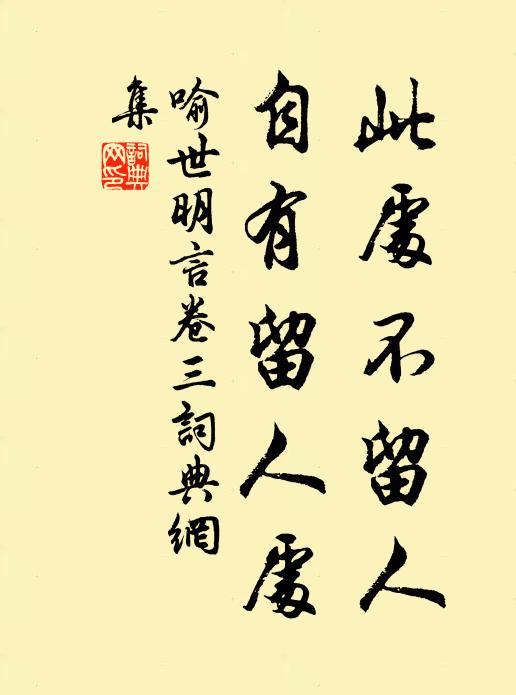 此處不留人
自有留人處
喻世明言卷三詞典網
集
詞典
网印